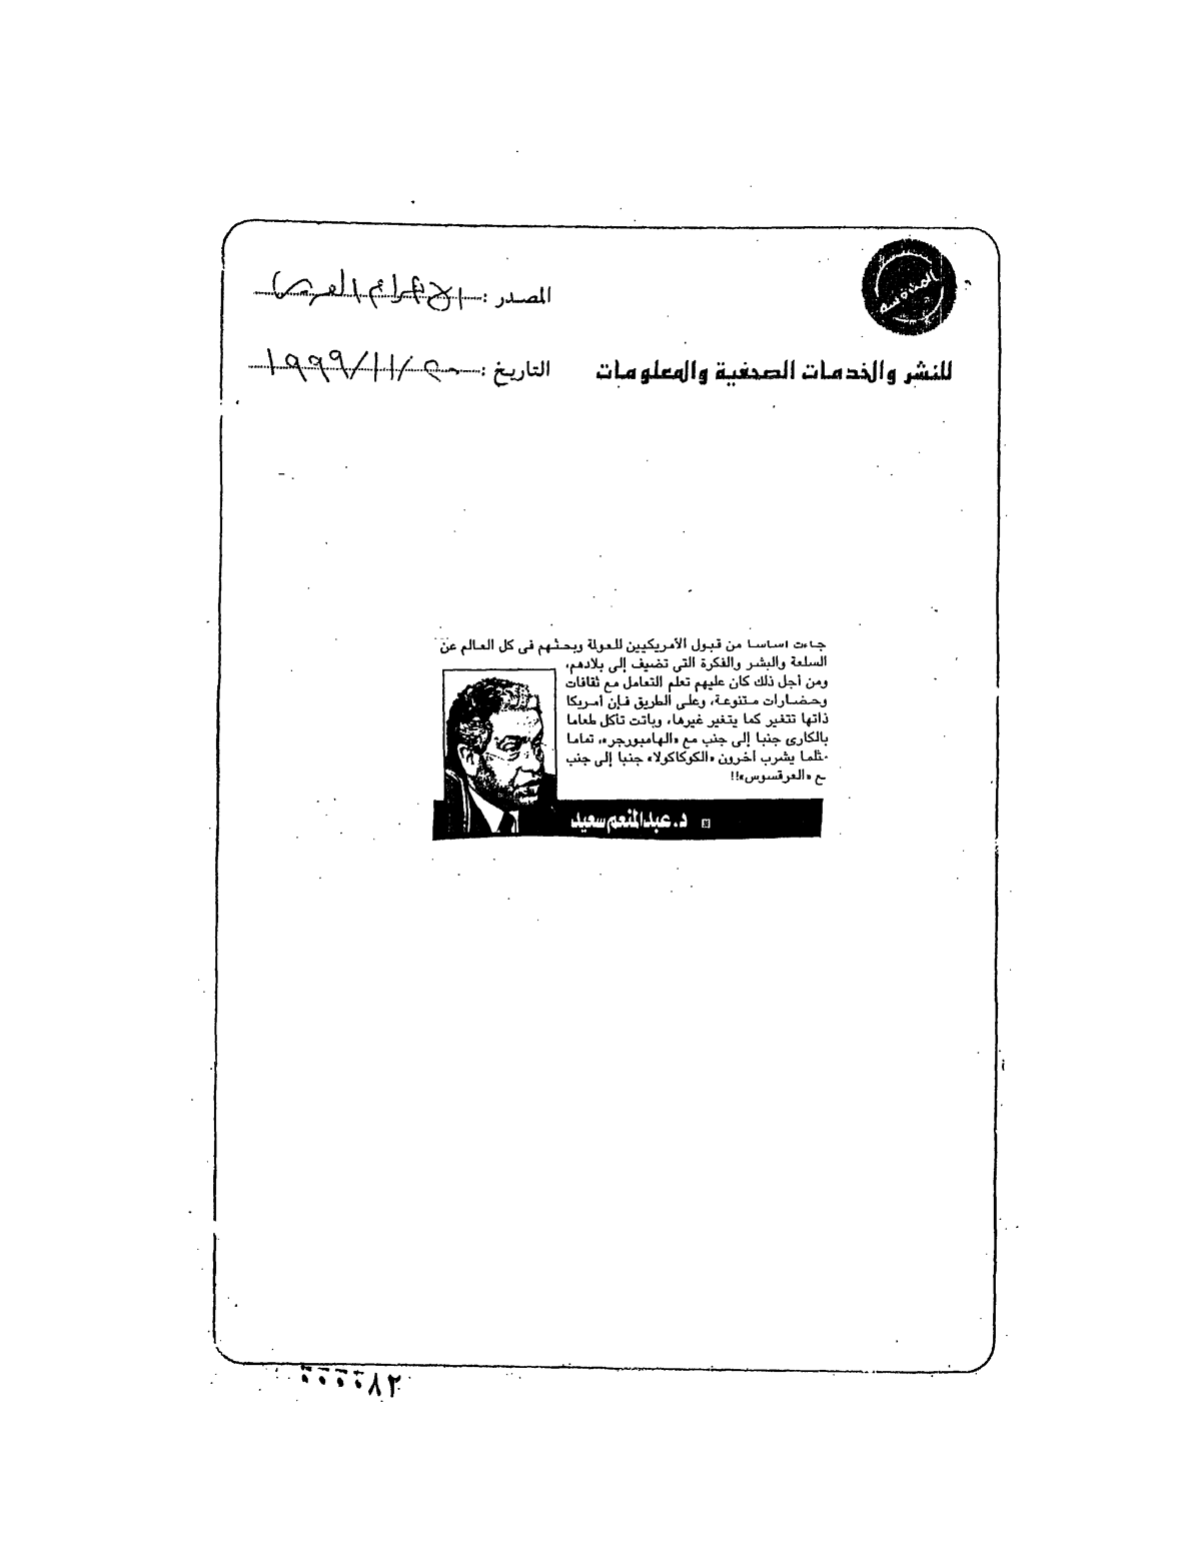 المصدر : الاهرام العربى
للنشر والخدمات الصحفية والمعلومات
التاريخ : ٢٠/١١/١٩٩٩
جاءت اساسا من قبول الأمريكيين للعولة وبحثهم فى كل العالم عن
السلعة والبشر والفكرة التى تضيف إلى بلادهم،
ومن أجل ذلك كان عليهم تعلم التعامل مع ثقافات
وحضارات متنوعة، وعلى الطريق فإن أمريكا
ذاتها تتغير كما يتغير غيرها، وباتت تأكل طعاما
بالكارى جنبا إلى جنب مع «الهامبورجر»، تماما
مثلما يشرب آخرون «الكوكاكولا» جنبا إلى جنب
مع «العرقسوس»!!
د. عبدالمنعم سعيد